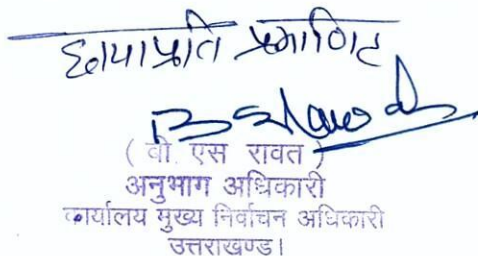 छायाप्रति प्रमाणित
( बी. एस रावत )
अनुभाग अधिकारी
कार्यालय मुख्य निर्वाचन अधिकारी
उत्तराखण्ड।